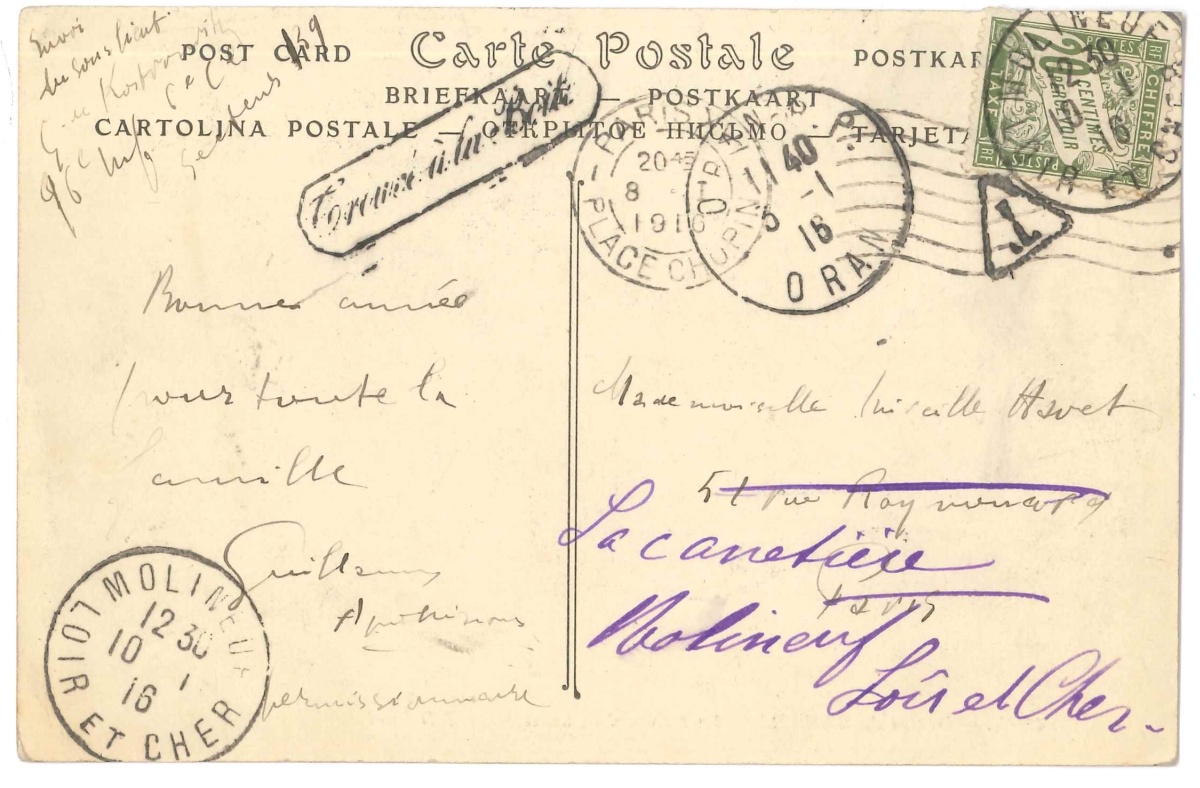 Envoi
du sous lieut.
G. de Kostrowitzky
96e
Secteurs 139
POST CARD Carte Postale POSTKAR
BRIEFKAART — POSTKAART
CARTOLINA POSTALE — ОТКРЫТОЕ ПИСЬМО — TARJETA
Trouvé à la Boite
PARIS
20 45
8 - 1
1916
PLACE CHOPIN
ORAN R.P.
11 40
5 - 1
16
ORAN
MOLINEUF
12 30
10 1
16
LOIR ET CHER
CHIFFRE
POSTES
20
CENTIMES
À PERCEVOIR
TAXE
T
Bonne année
pour toute la
famille
Guillaume
Apollinaire
permissionnaire
Mademoiselle Mireille Havet
51 rue Raynouard
Paris
La canetière
Molineuf
Loir et Cher -
MOLINEUF
12 30
10 1
16
LOIR ET CHER